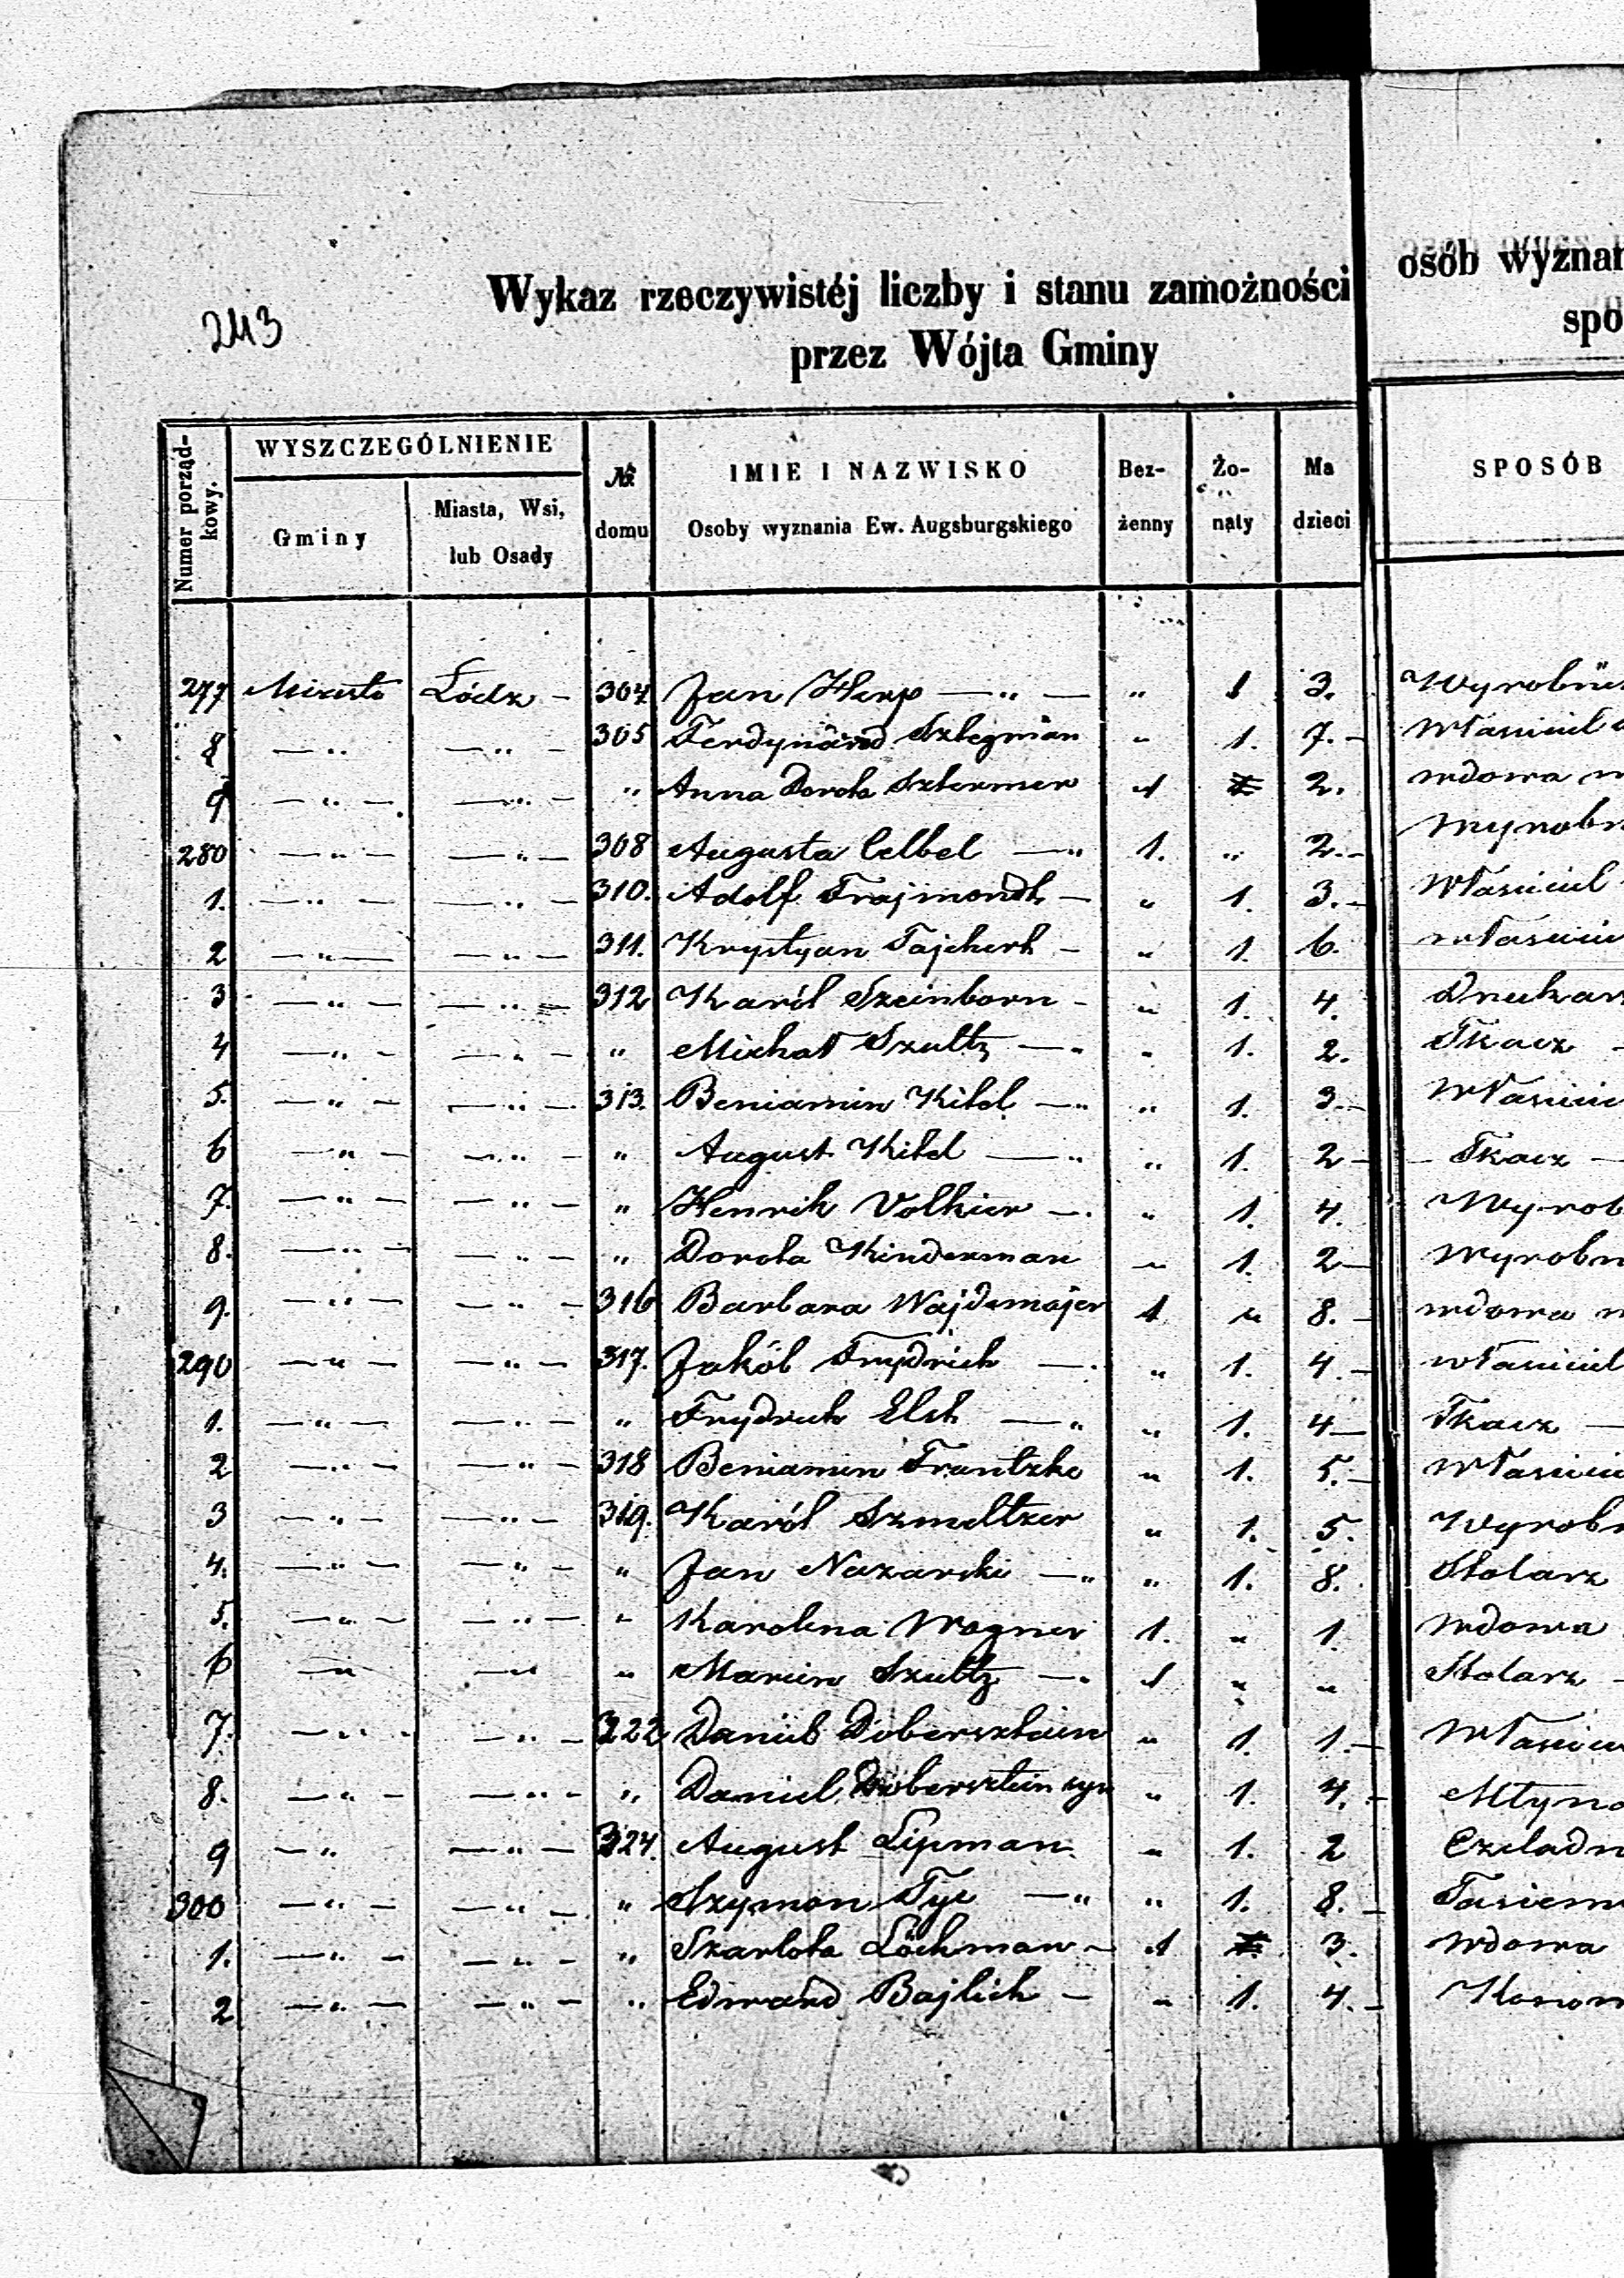 243
Wykaz rzeczywistéj liczby i stanu zamożności
osób wyznan
przez Wójta Gminy
spo
Numer porządkowy.
WYSZCZEGÓLNIENIE
Gminy
Miasta, Wsi, lub Osady
№ domu
IMIE I NAZWISKO
Osoby wyznania Ew. Augsburgskiego
Bezżenny
Żonaty
Ma dzieci
SPOSÓB
277 Miasto Łódz - 304 Jan Herp — „ — „ 1 3. Wyrobni
8 — „ — „ — 305 Ferdynand Szlegman „ 1. 7. — Własciciel
9 — „ — — „ — „ Anna Dorota Szlermer 1 2. wdowa
280 — „ — — „ — 308 Augusta Celbel — „ 1. „ 2. — Wyrobn
1. — „ — — „ — 310. Adolf Frajmondt — „ 1. 3. — Własciciel
2 — „ — — „ — 311. Krystyan Tajchert — „ 1. 6. własciciel
3 — „ — — „ — 312 Karól Szeinborn - „ 1. 4. Drukar
4 — „ — — „ — „ Michał Szultz — „ „ 1. 2. Tkacz —
5. — „ — — „ — 313. Beniamin Kitel — „ „ 1. 3. — Własciciel
6 — „ — — „ — „ August Kitel — „ „ 1. 2 — Tkacz —
7. — „ — — „ — „ Henrik Volkier — . „ 1. 4. Wyrob
8. — „ — — „ — „ Dorota Kinderman „ 1. 2 — Wyrobn
9. — „ — — „ — 316 Barbara Wajdemajer 1 „ 8. — wdowa
290 — „ — — „ — 317. Jakób Frydrich — . „ 1. 4. — własciciel
1. — „ — — „ — „ Frydrich Elst — „ „ 1. 4 — Tkacz —
2 — „ — — „ — 318 Beniamin Frantzke „ 1. 5. — Własciciel
3 — „ — — „ — 319. Karól Szmeltzer „ 1. 5. Wyrobn
4. — „ — — „ — „ Jan Nazarski — „ „ 1. 8. Stolarz
5. — „ — — „ — „ Karolina Wagner 1. „ 1. Wdowa
6 — „ — „ „ Marcin Szultz — . 1 „ „ Stolarz —
7. — „ - — „ — 322 Daniel Dobersztein „ 1. 1. — Własciciel
8. — „ — — „ — „ Daniel Dobersztein syn „ 1. 4. — Młyna
9 — „ — „ — 324. August Lipman „ 1. 2 Czeladn
300 — „ — — „ — „ Szymon Tye — „ „ 1. 8. — Tasiem
1. — „ — — „ — „ Szarlota Löchman — 1 3. Wdowa
2 — „ — — „ — „ Edward Bajlich — „ 1. 4. —